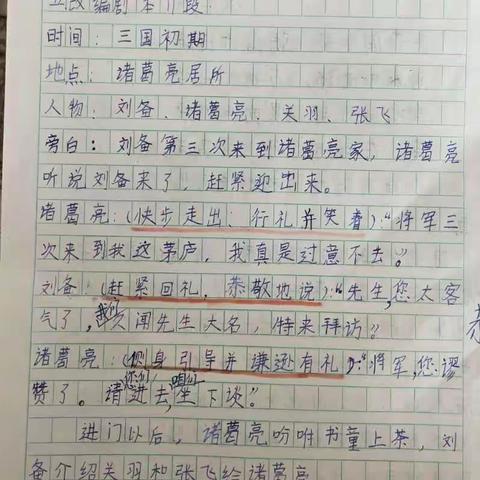 改编剧本片段:
时间:三国初期
地点:诸葛亮居所
人物:刘备、诸葛亮、关羽、张飞
旁白:刘备第三次来到诸葛亮家,诸葛亮
听说刘备来了,赶紧迎出来。
诸葛亮:(快步走出、行礼并笑着):“将军三
次来到我这茅庐,我真是过意不去。”
刘备:(赶紧回礼,恭敬地说):“先生,您太客
气了,我们久闻先生大名,特来拜访。”
诸葛亮:(侧身引导并谦逊有礼):“将军,您谬
赞了。请您们进去,咱们坐下谈。”
进门以后,诸葛亮吩咐书童上茶,刘
备介绍关羽和张飞给诸葛亮